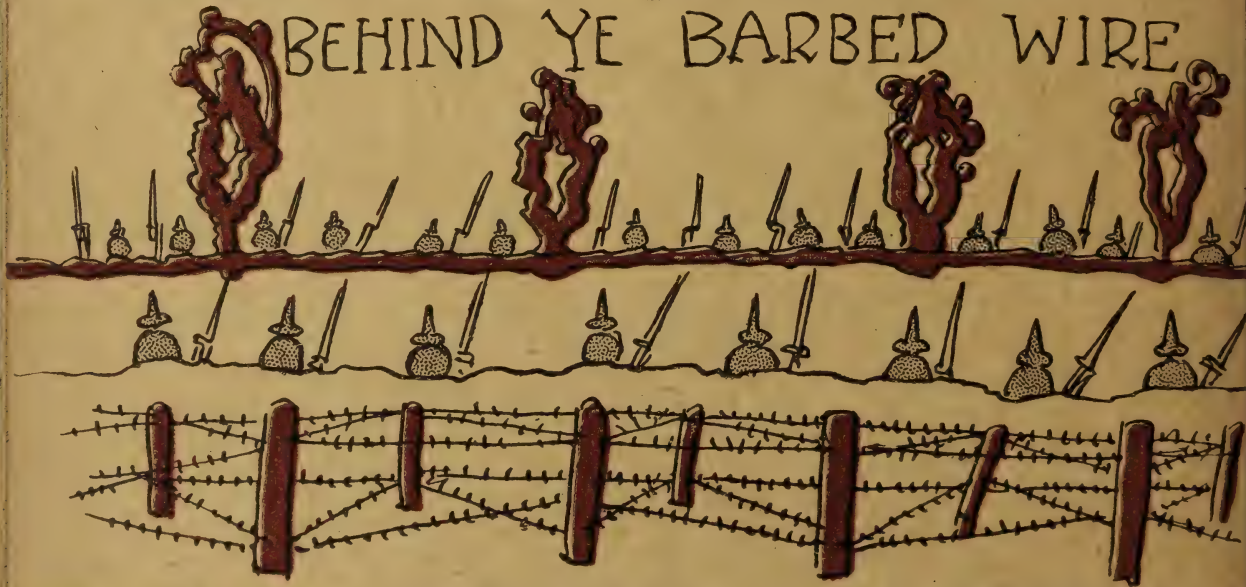 BEHIND YE BARBED WIRE